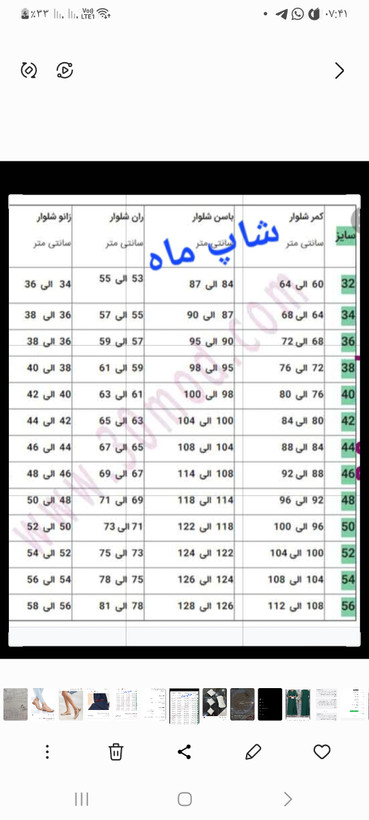 ٪۳۳ Vo) LTE1 ۰۷:۴۱
سایز کمر شلوار باسن شلوار ران شلوار زانو شلوار
سانتی متر سانتی متر سانتی متر سانتی متر
شاپ ماه
32 60 الی 64 84 الی 87 53 الی 55 34 الی 36
34 64 الی 68 87 الی 90 55 الی 57 36 الی 38
36 68 الی 72 90 الی 95 57 الی 59 36 الی 38
38 72 الی 76 95 الی 98 59 الی 61 38 الی 40
40 76 الی 80 98 الی 100 61 الی 63 40 الی 42
42 80 الی 84 100 الی 104 63 الی 65 42 الی 44
44 84 الی 88 104 الی 108 65 الی 67 44 الی 46
46 88 الی 92 108 الی 114 67 الی 69 46 الی 48
48 92 الی 96 114 الی 118 69 الی 71 48 الی 50
50 96 الی 100 118 الی 122 71 الی 73 50 الی 52
52 100 الی 104 122 الی 124 73 الی 75 52 الی 54
54 104 الی 108 124 الی 126 75 الی 78 54 الی 56
56 108 الی 112 126 الی 128 78 الی 81 56 الی 58
www.30mod.com